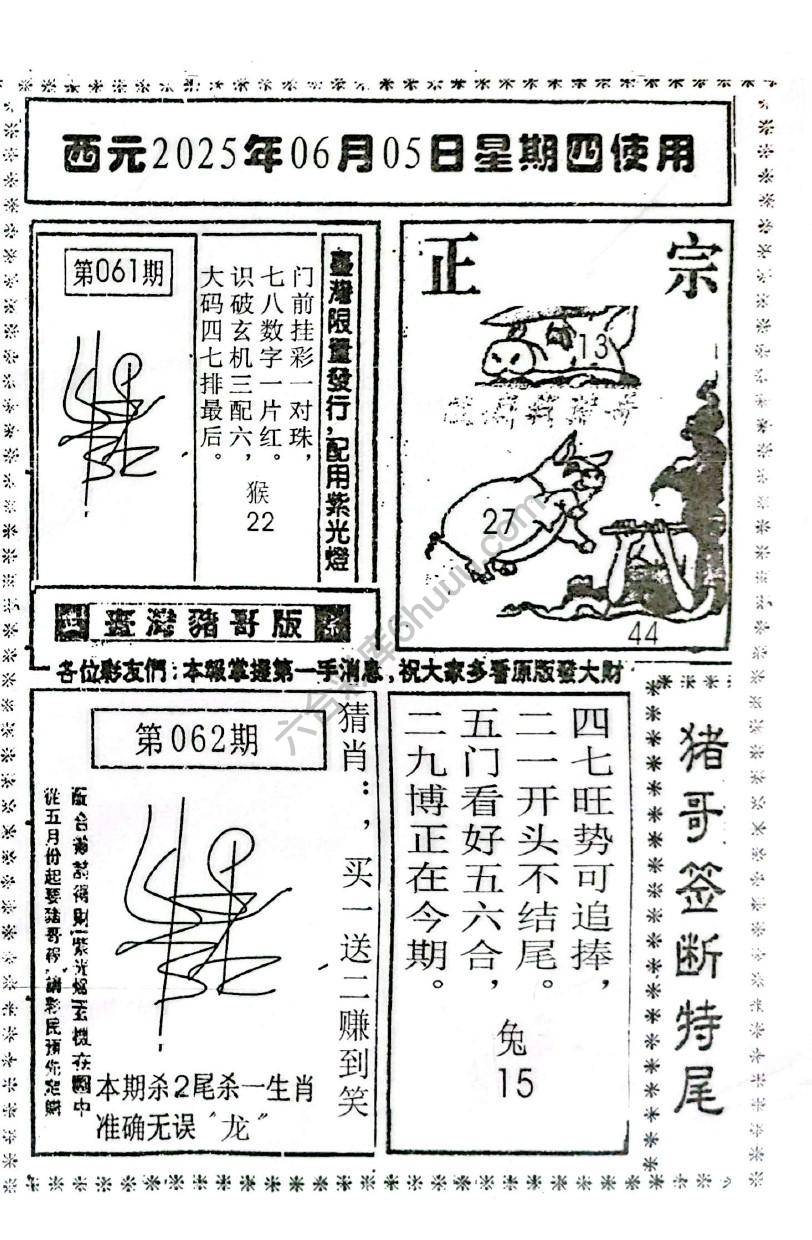 西元2025年06月05日星期四使用
第061期
门前挂彩一对珠，
七八数字一片红。
识破玄机三配六，
大码四七排最后。
猴
22
臺灣限量發行，配用紫光燈
臺灣豬哥版
正宗
13
27
44
各位彩友們：本報掌握第一手消息，祝大家多看原版發大財
第062期
猜肖：，买一送二赚到笑
從五月份起要豬哥報，請彩民預先定購
本期杀2尾杀一生肖
准确无误“龙”
四七旺势可追捧，
二一开头不结尾。
五门看好五六合，
二九博正在今期。
兔
15
猪哥签断特尾